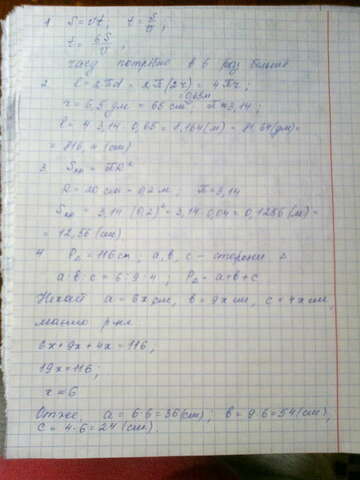 1. S = vt, t = S/v;
t = 6S/v;
часу потрібно в 6 раз більше
2. l = 2πd = 2π(2r) = 4πr
r = 6,5 дм = 65 см = 0,65 м, π ≈ 3,14;
l = 4·3,14·0,65 = 8,164 (м) = 81,64 (дм) =
= 816,4 (см)
3. Sкр = πR²
R = 20 см = 0,2 м; π = 3,14
Sкр = 3,14·(0,2)² = 3,14·0,04 = 0,1256 (м) =
= 12,56 (см)
4. P△ = 116 см; a, b, c – сторони
a : b : c = 6 : 9 : 4; P△ = a+b+c
Нехай a = 6x см, b = 9x см, c = 4x см,
маємо р-ня
6x + 9x + 4x = 116;
19x = 116;
x ≈ 6
Отже, a = 6·6 = 36 (см); b = 9·6 = 54 (см);
c = 4·6 = 24 (см).